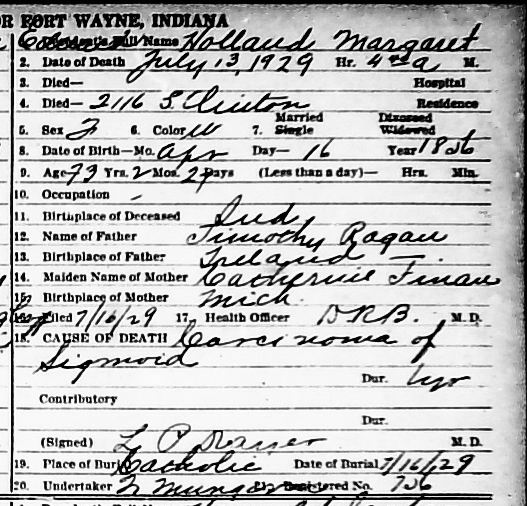 OR FORT WAYNE, INDIANA
Full Name Holland Margaret
2. Date of Death July 13, 1929 Hr. 4 a M.
3. Died— Hospital
4. Died— 2116 S. Clinton Residence
5. Sex F 6. Color W 7. Married Single Divorced Widowed
8. Date of Birth—Mo. Apr Day— 16 Year 1856
9. Age 73 Yrs. 2 Mos. 27 Days (Less than a day)— Hrs. Min.
10. Occupation -
11. Birthplace of Deceased Ind
12. Name of Father Timothy Ragan
13. Birthplace of Father Ireland
14. Maiden Name of Mother Catherine Finan
15. Birthplace of Mother Mich.
16. Filed 7/16/29 17. Health Officer D.R.B. M. D.
18. CAUSE OF DEATH Carcinoma of
Sigmoid
Dur. 1 yr
Contributory
Dur.
(Signed) L P M. D.
19. Place of Burial Catholic Date of Burial 7/16/29
20. Undertaker Registered No. 756